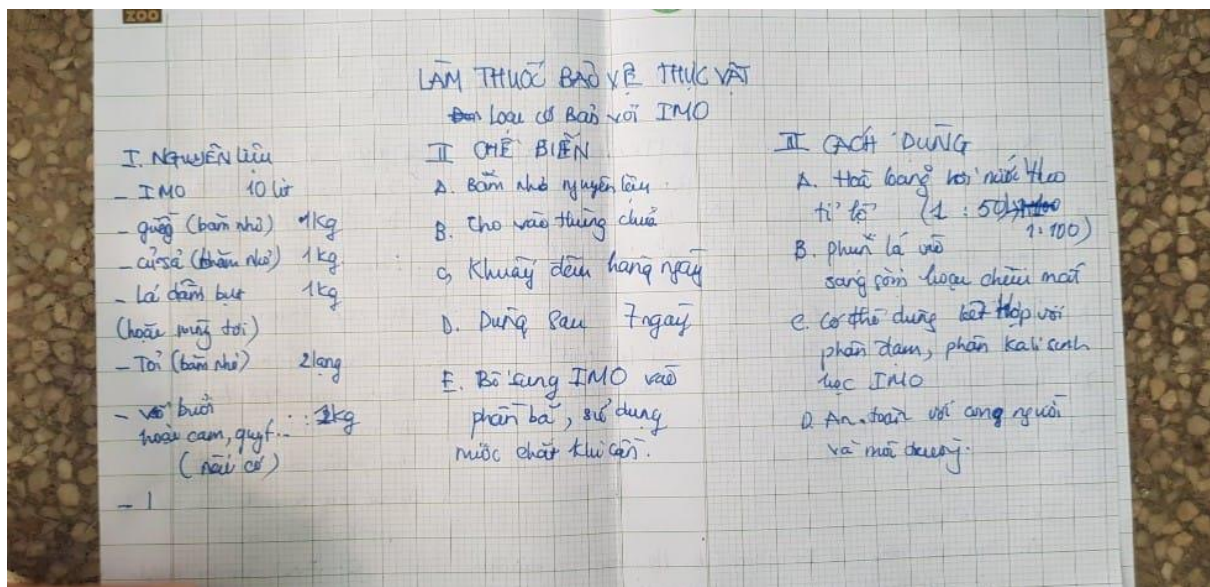 ZOO
LÀM THUỐC BẢO VỆ THỰC VẬT
Loại cơ Bản với IMO
I. NGUYÊN liệu
- IMO 10 lit
- guềg (bằm nhỏ) 1kg
- củ sả (bằm nhỏ) 1kg
- Lá dâm bụt 1kg
(hoặc mùng tơi)
- Tỏi (bằm nhỏ) 2 lạng
- vỏ bưởi
hoặc cam, quýt... : 2kg
(nếu có)
- 1
II CHẾ BIẾN
A. Bằm nhỏ nguyên liệu
B. Cho vào thùng chứa
C, Khuấy đều hàng ngày
D. Dùng sau 7 ngày
E. Bổ sung IMO vào
phần bã, sử dụng
nước chắt khi cần.
III CÁCH DÙNG
A. Hoà loãng với nước theo
tỉ lệ (1 : 50)
1:100)
B. phun lá vào
sáng sớm hoặc chiều mát
C. Có thể dùng kết hợp với
phân đạm, phân Kali sinh
học IMO
D. An toàn với con người
và môi trường.